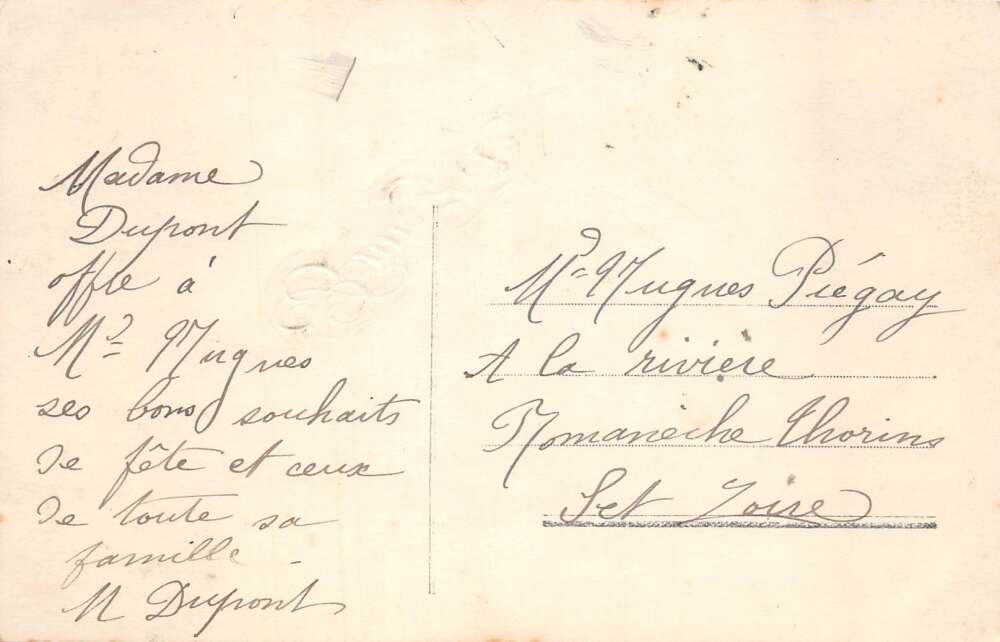 Madame
Dupont
offre à
Md Mugnes
ses bons souhaits
de fête et ceux
de toute sa
famille -
M Dupont
Md Mugnes Piégay
A la rivière
Romanèche Thorins
S et Loire